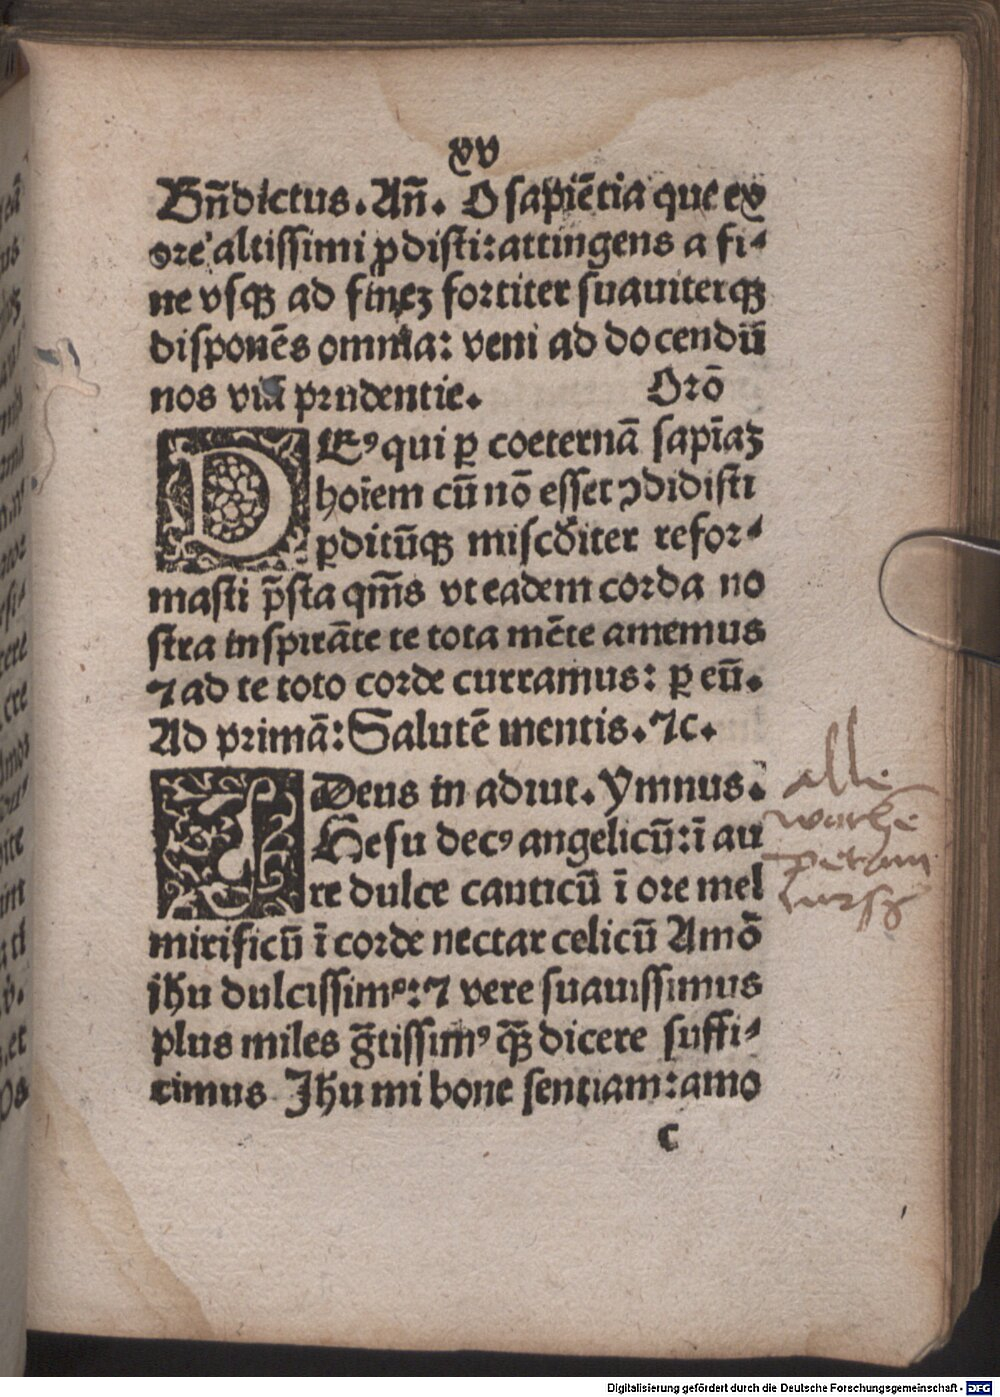 xv
Bñdictus. Añ. O sapiētia que ex
ore altissimi ꝓdisti: attingens a fi⸗
ne vsqꝫ ad fineꝫ fortiter suauiterqꝫ
disponēs omnia: veni ad docendū
nos viā prudentie. Orō
DEꝰ qui ꝑ coeternā sapīaꝫ
hoīem cū nō esset ꝯdidisti
ꝑditūqꝫ miscḋiter refor⸗
masti p̄sta qm̄s vt eadem corda no
stra inspirāte te tota mēte amemus
⁊ ad te toto corde curramus: ꝑ eū.
Ad primā: Salutē mentis. ⁊c.
Deus in adiut. Ymnus.
IHesu decꝰ angelicū: ī au
re dulce canticū ī ore mel
mirificū ī corde nectar celicū Amō
ihu dulcissimꝰ: ⁊ vere suauissimus
plus miles g̃tissimꝰ qꝫ̄ dicere suffi⸗
cimus Jhu mi bone sentiam: amo
c
alle
Digitalisierung gefördert durch die Deutsche Forschungsgemeinschaft - DFG